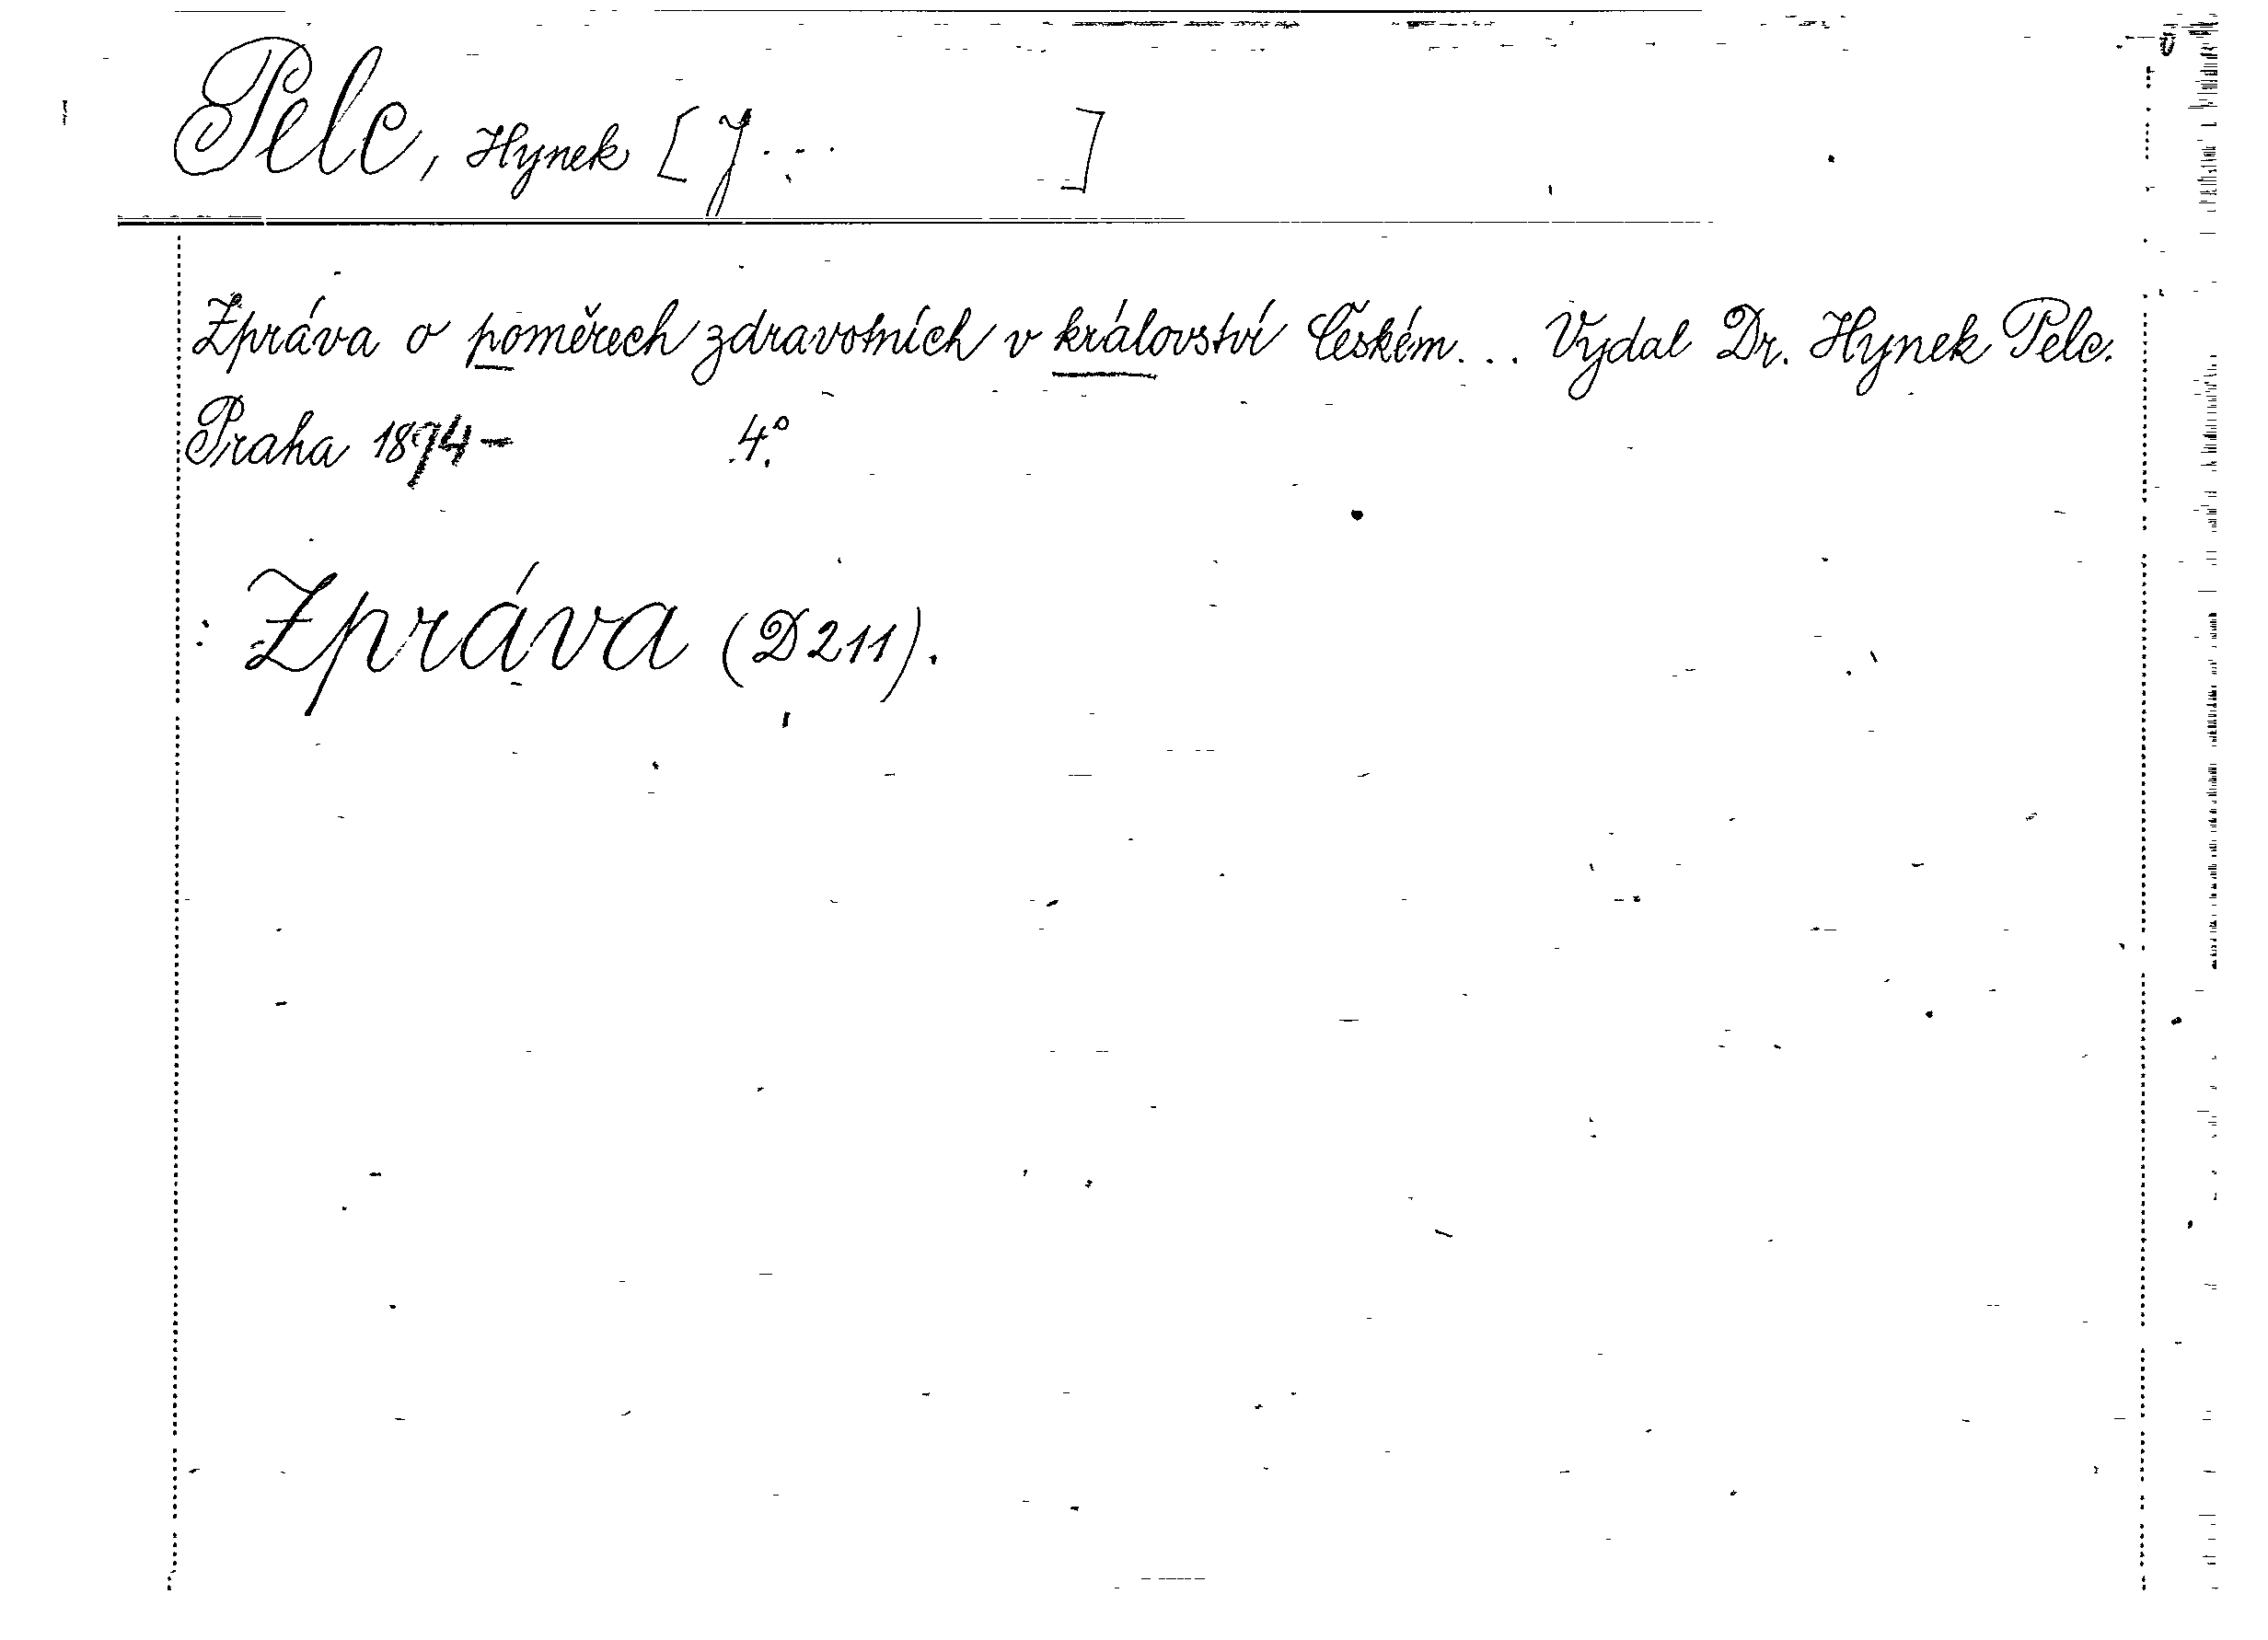 Pelc, Hynek [J... ]
Zpráva o poměrech zdravotních v království Českém... Vydal Dr. Hynek Pelc.
Praha 1894- 4°.
: Zpráva (D211).